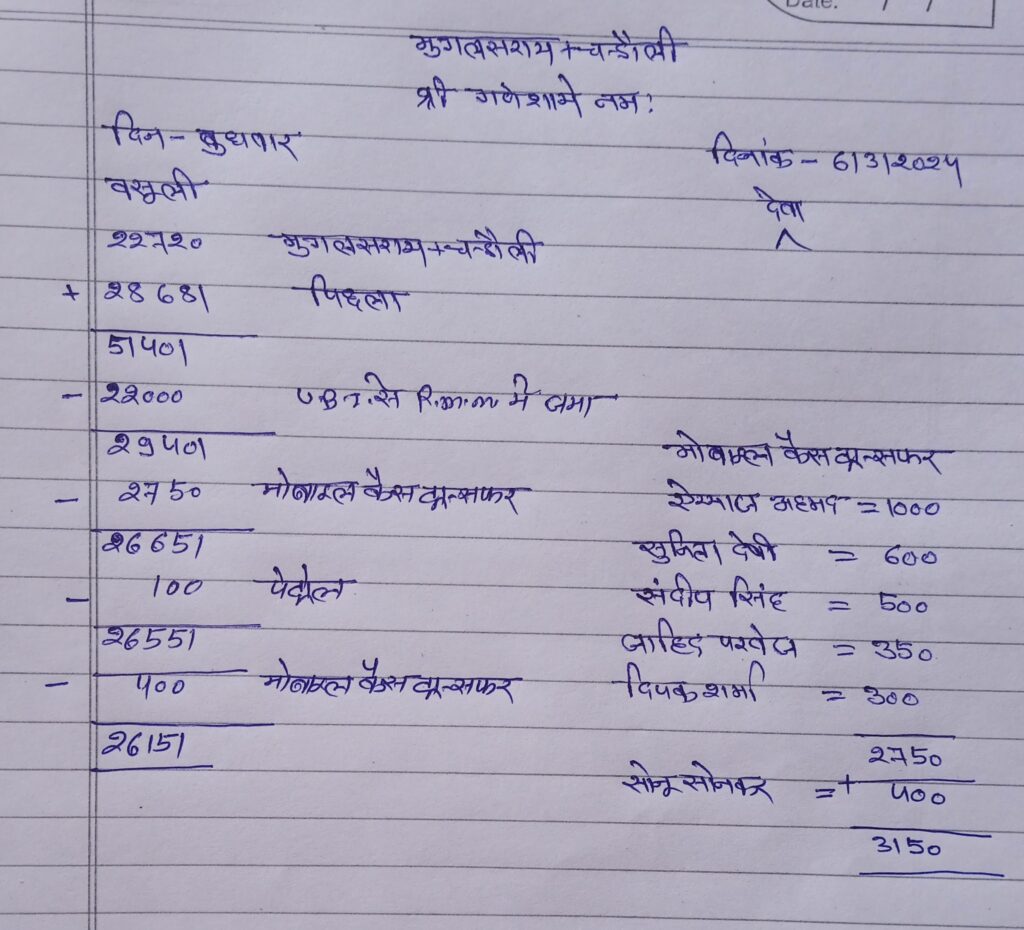 Date: / /
मुगलसराय + चन्दौली
श्री गणेशाये नम:
दिन - बुधवार
दिनांक - 6/3/2024
वसूली
देवा
22720 मुगलसराय + चन्दौली
+ 28681 पिछला
51401
- 22000 U.B.I. से R.m.m में जमा
29401
- 2750 मोबाइल कैस ट्रान्सफर
26651
- 100 पेट्रोल
26551
- 400 मोबाइल कैस ट्रान्सफर
26151
मोबाइल कैस ट्रान्सफर
अहमद = 1000
सुनिता देवी = 600
संदीप सिंह = 500
जाहिद परवेज = 350
दिपक शर्मा = 300
2750
सोनू सोनकर = + 400
3150